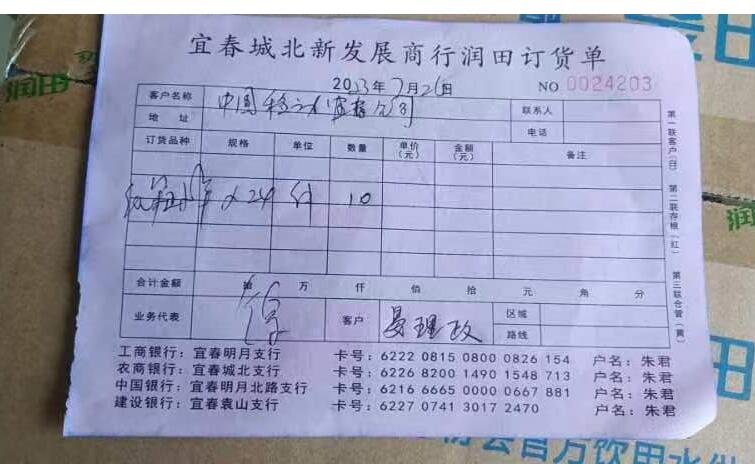 宜春城北新发展商行润田订货单
2023年7月26日 NO 0024203
客户名称 中国移动宜春分公司 联系人
地 址 电话
订货品种 规格 单位 数量 单价(元) 金额(元) 备注
×24 件 10
合计金额 拾 万 仟 佰 拾 元 角 分
业务代表 客户 易理政 区域
路线
工商银行：宜春明月支行 卡号：6222 0815 0800 0826 154 户名：朱君
农商银行：宜春城北支行 卡号：6226 8200 1490 1548 713 户名：朱君
中国银行：宜春明月北路支行 卡号：6216 6665 0000 0667 881 户名：朱君
建设银行：宜春袁山支行 卡号：6227 0741 3017 2470 户名：朱君
第一联客户(白) 第二联存根(红) 第三联仓管(黄)
润田
润
田
官方饮用水